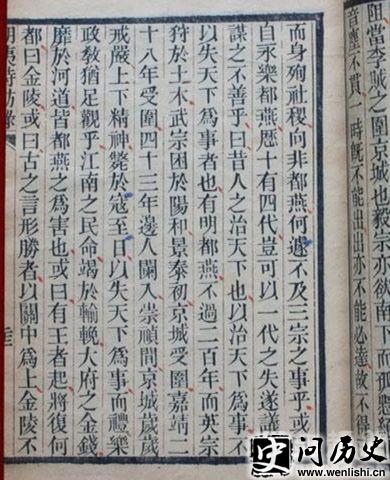 當李賊之圍京城也毅宗亦欲南下而孤懸
音塵不貫一時旣不能出出亦不能必達故不得
而身殉社稷向非都燕何遽不及三宗之事乎或
自永樂都燕歷十有四代豈可以一代之失遂議
謀之不善乎曰昔人之治天下也以治天下爲事不
以失天下爲事者也有明都燕不過二百年而英宗
狩於土木武宗困於陽和景泰初京城受圍嘉靖二
十八年受圍四十三年邊人闌入崇禎間京城歲歲
戒嚴上下精神斃於寇至日以失天下爲事而禮樂
政敎猶足觀乎江南之民命竭於輸輓大府之金錢
靡於河道皆都燕之爲害也或曰有王者起將復何
都曰金陵或曰古之言形勝者以關中爲上金陵不
明夷待訪錄
史问历史
www.wenlishi.cn